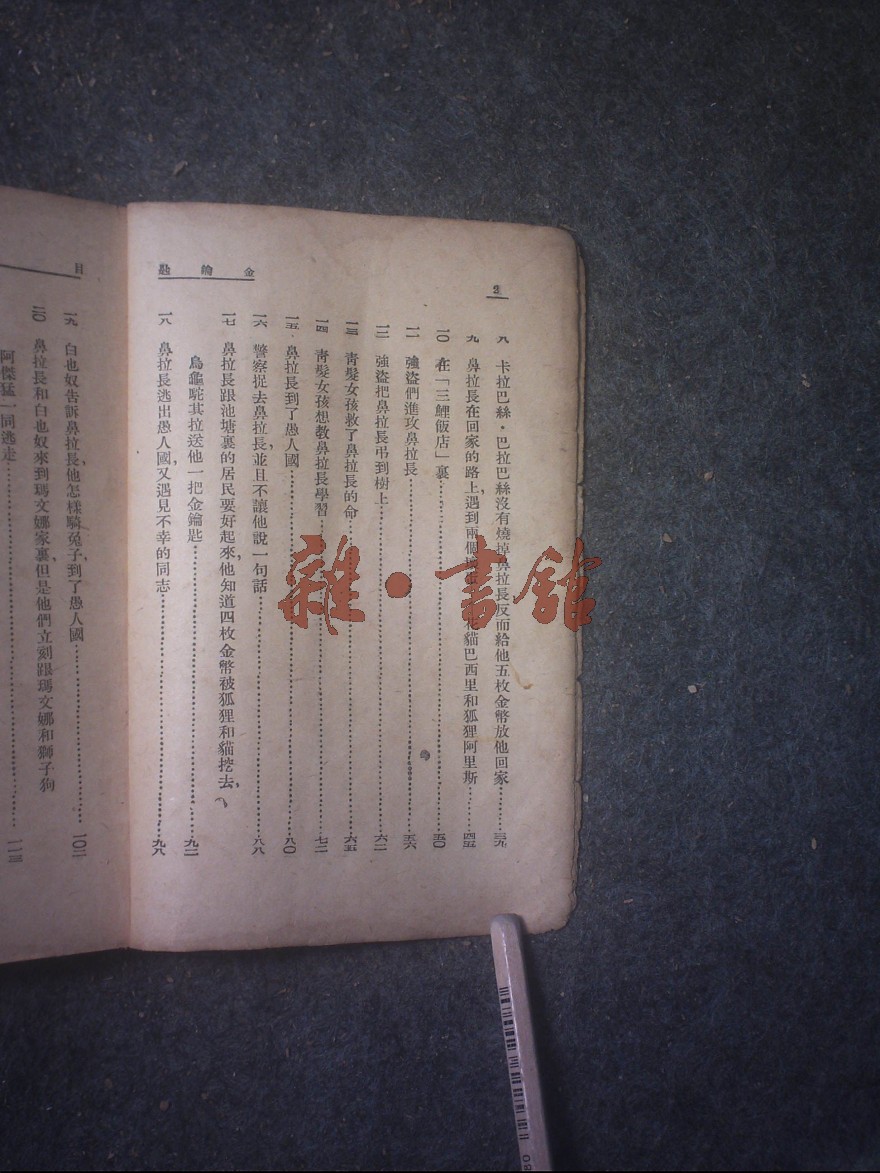 2
金鑰匙
八 卡拉巴絲·巴拉巴絲沒有燒掉鼻拉長反而給他五枚金幣放他回家……三九
九 鼻拉長在回家的路上，遇到兩個 花貓巴西里和狐狸阿里斯……四五
一〇 在「三鯉飯店」裏……五〇
一一 強盜們進攻鼻拉長……五六
一二 強盜把鼻拉長弔到樹上……六二
一三 青髮女孩救了鼻拉長的命……六五
一四 青髮女孩想教鼻拉長學習……七二
一五 鼻拉長到了愚人國……八〇
一六 警察捉去鼻拉長，並且不讓他說一句話……八八
一七 鼻拉長跟池塘裏的居民要好起來，他知道四枚金幣被狐狸和貓挖去，
烏龜咜其拉送他一把金鑰匙……九二
一八 鼻拉長逃出愚人國，又遇見不幸的同志……九八
目
一九 白也奴告訴鼻拉長，他怎樣騎兔子，到了愚人國……一〇二
二〇 鼻拉長和白也奴來到瑪文娜家裏，但是他們立刻跟瑪文娜和獅子狗
阿傑猛一同逃走……一一三
雜·書館